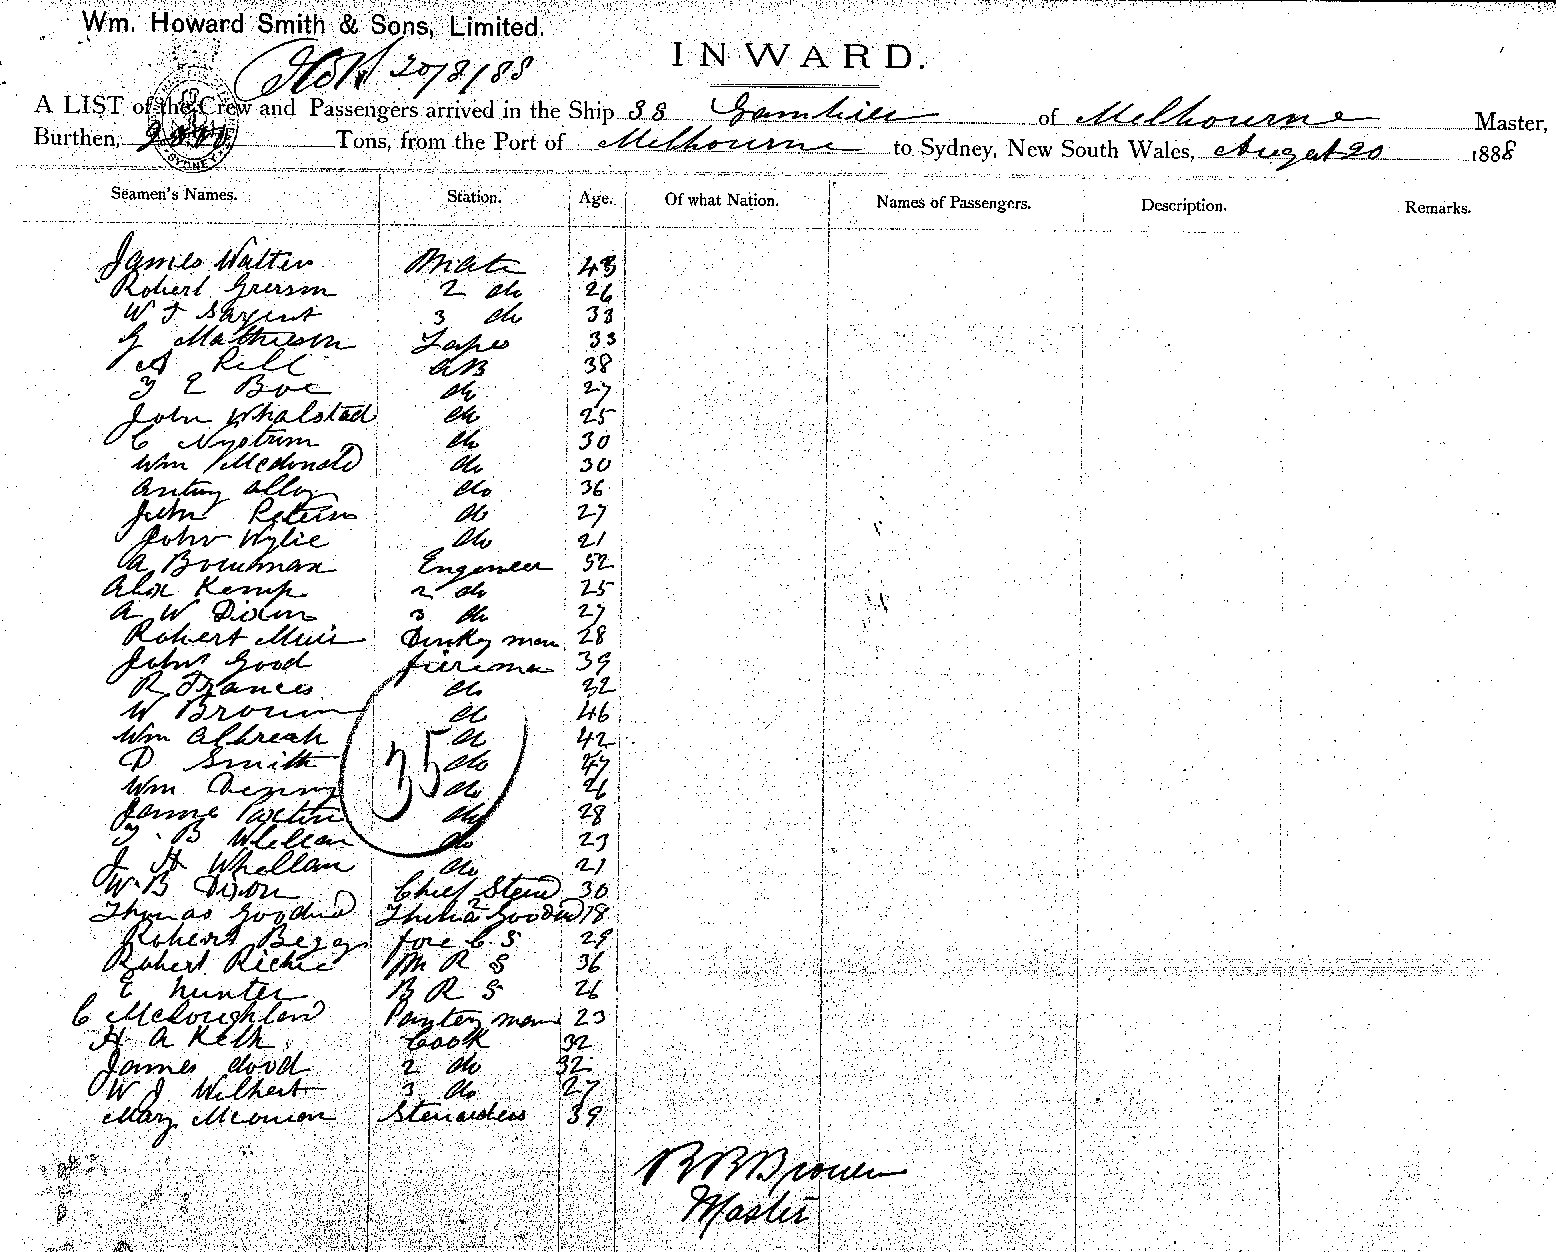 Wm. Howard Smith & Sons, Limited.
INWARD.
20/8/88
A LIST of the Crew and Passengers arrived in the Ship SS Gambier of Melbourne Master,
Burthen, Tons, from the Port of Melbourne to Sydney, New South Wales, August 20 1888
Seamen's Names. Station. Age. Of what Nation. Names of Passengers. Description. Remarks.
James Walter Mate 43
Robert Grerson 2 do 26
W J Sargent 3 do 33
G Mathieson Lamps 33
A Rill AB 38
T E Boe do 27
John Whalstad do 25
C Nystrom do 30
Wm McDonald do 30
Antny Alloy do 36
John Petern do 27
John Wylie do 21
A Bowman Engeneer 52
Alex Kemp 2 do 25
A W Dixon 3 do 27
Robert Muir Dunky man 28
John Good fireman 39
R Frances do 32
W Brown do 46
Wm do 42
D Smith do 47
Wm Denny do 26
James Paxton do 28
T. B Whellan do 23
J H Whellan do 21
35
W. B Dixon Chief Stewd 30
Thomas Goodwd 18
Robert Beggs fore C S 29
Robert Richie M R S 36
E Hunter B R S 26
C McLoughlan Pantry man 23
H A Kelk Cook 32
James dodd 2 do 32
W J Wilbert 3 do 27
Mary Stewardess 39
R B Brown
Master